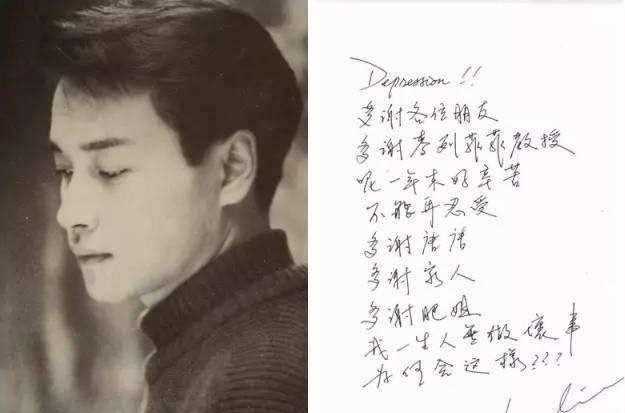 Depression!!
多谢各位朋友
多谢麦列菲菲教授
呢一年来好辛苦
不能再忍受
多谢唐唐
多谢家人
多谢肥姐
我一生人无做坏事
为何会这样???